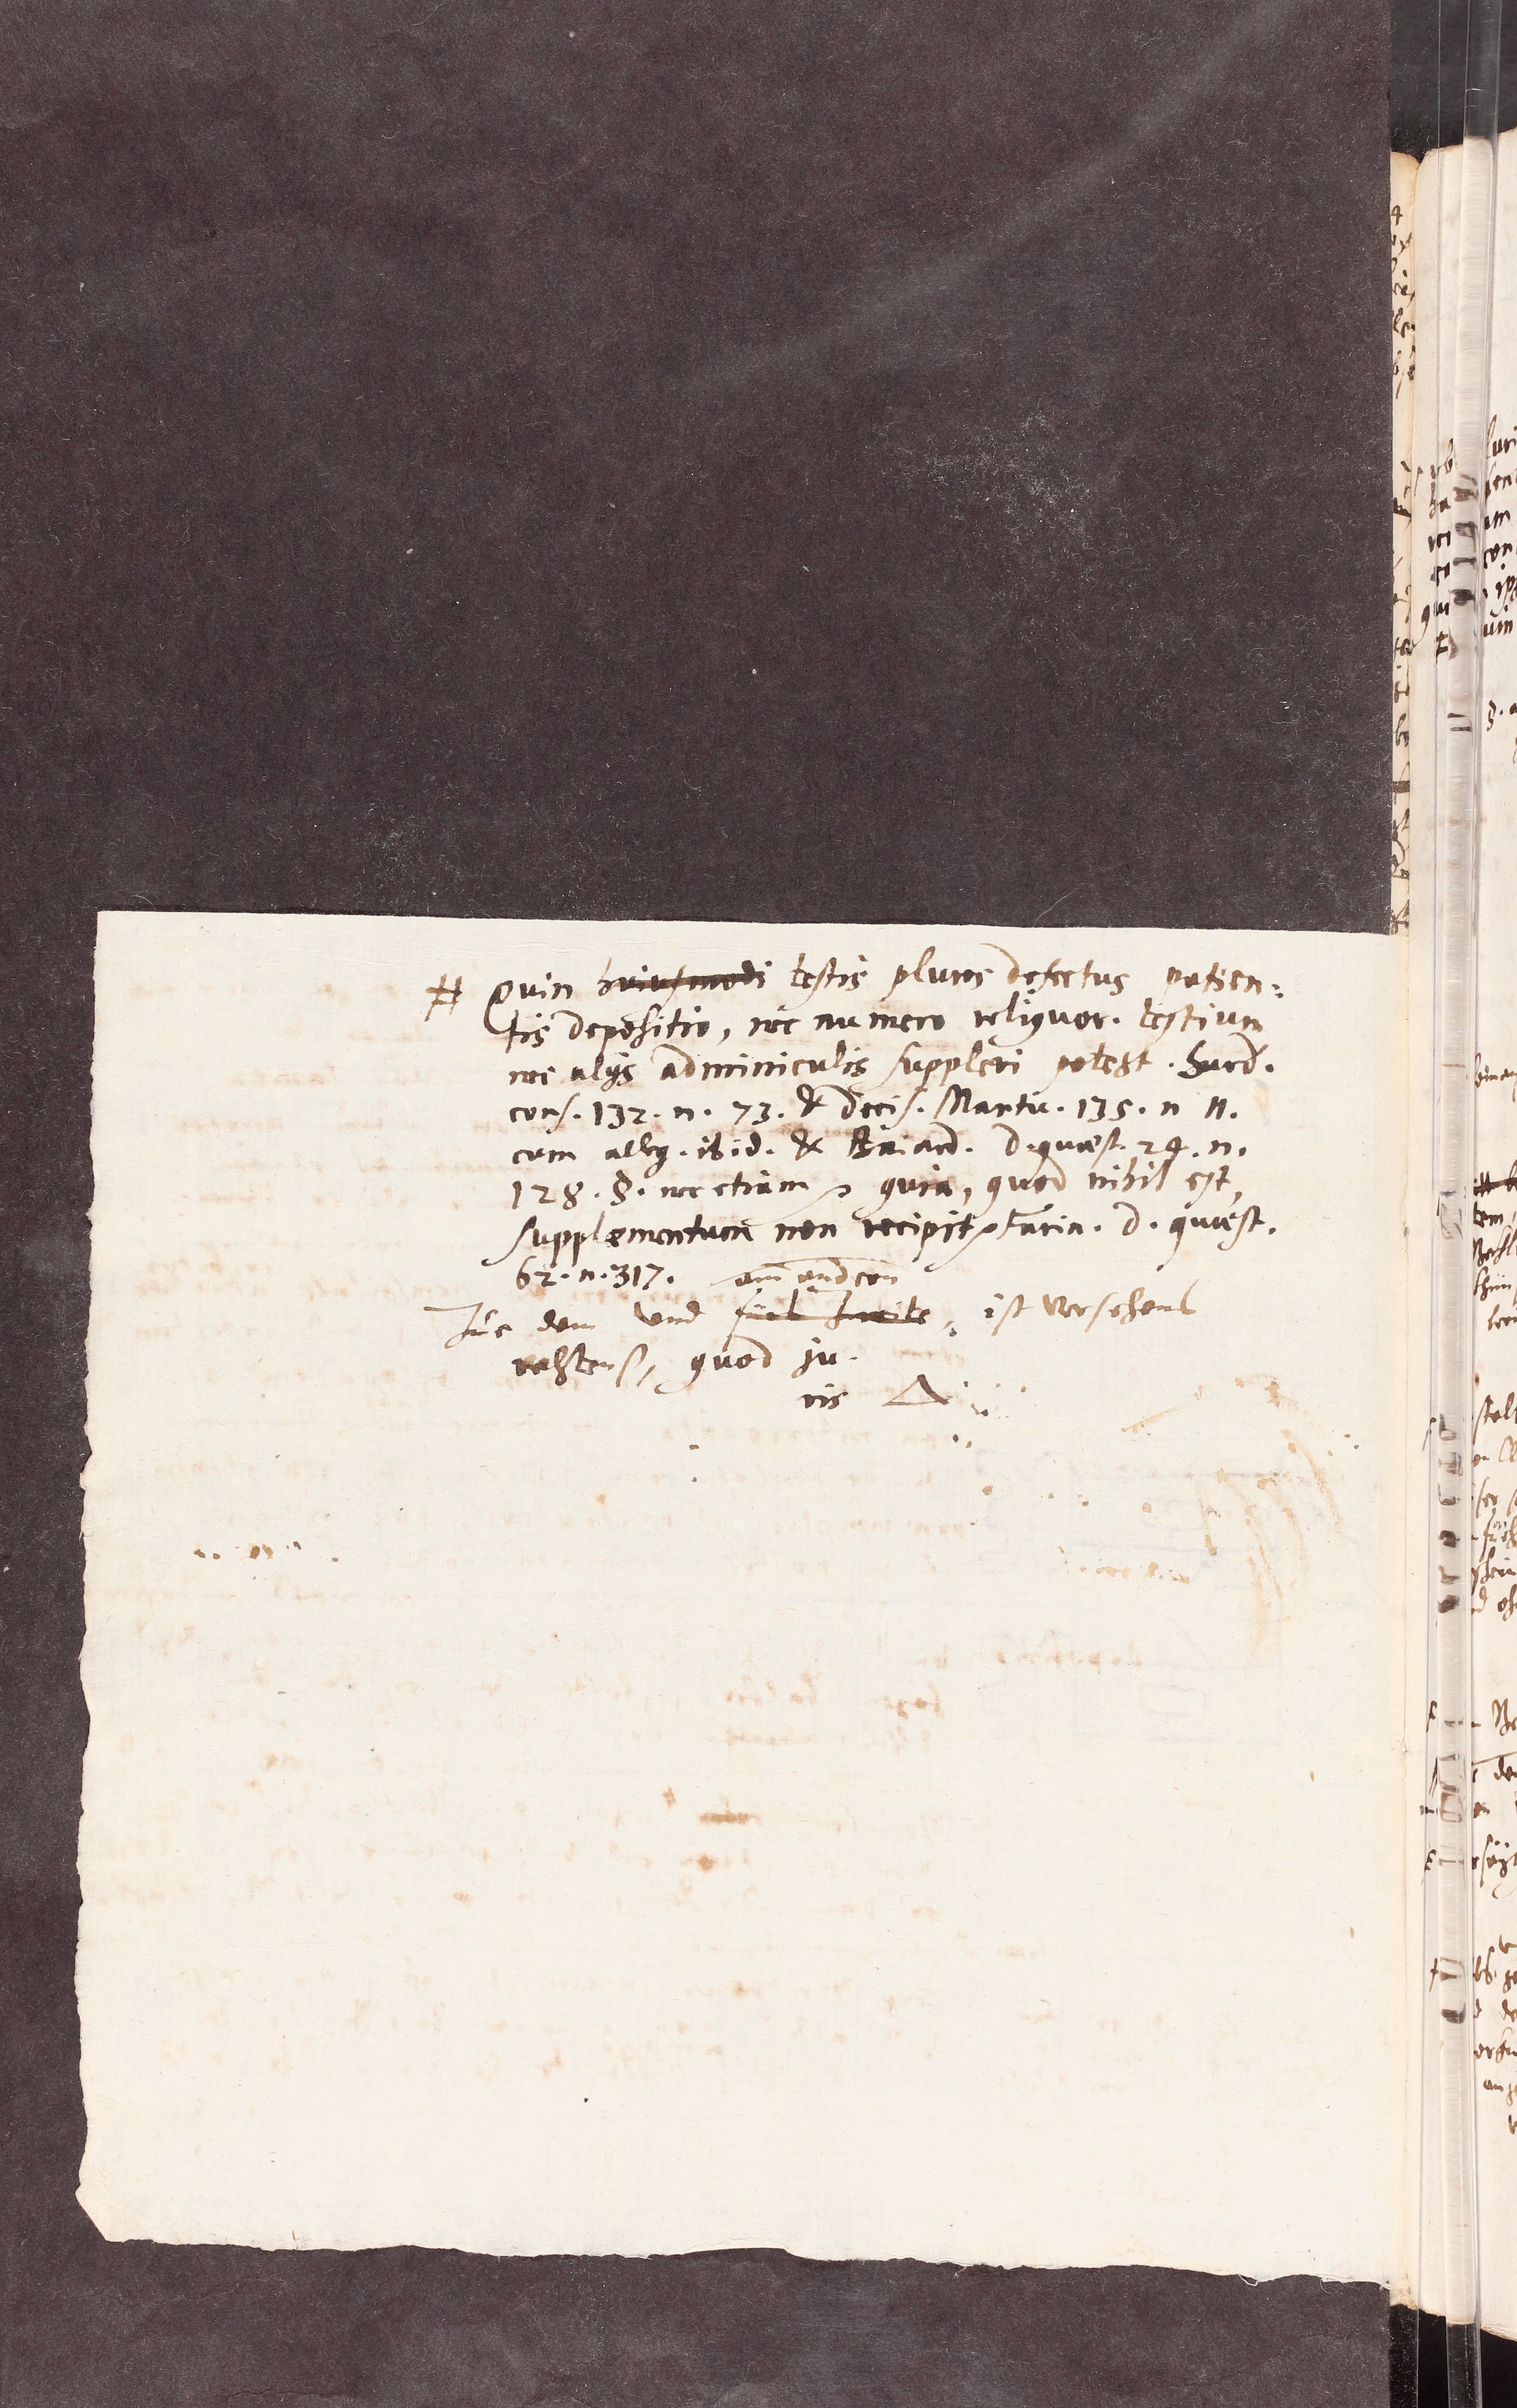 # Quin huiusmodi testis plures defectus patien:
tis depositio, nec numero reliquor. testium
nec alijs adminiculis suppleri potest. Surd.
cons. 132. n. 73. & decis. Mantu. 135. n 11.
cum alleg. ibid. & Baiard. d. quæst. 24. n.
128. §. nec etiam quia, quod nihil est,
supplementum non recipit Farin. d. quæst.
62. n. 317. am andern
Zu dem und ist Versehens
rechtens, quod ju-
ris Δ